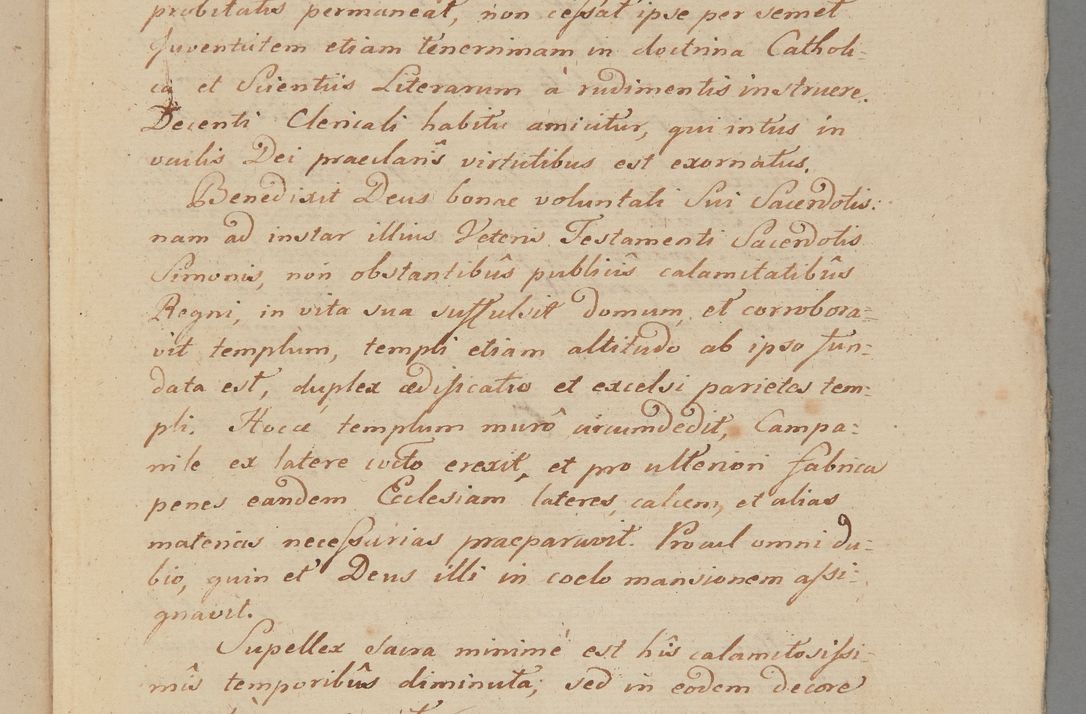 probitatis permaneat, non cessat ipse per semet
Juventutem etiam tenerrimam in doctrina Catholi-
ca et Scientiis Literarum à rudimentis instruere.
Decenti Clericali habitu amicitur, qui intus in
oculis Dei praeclaris virtutibus est exornatus.
Benedixit Deus bonae voluntati Sui Sacerdotis:
nam ad instar illius Veteris Testamenti Sacerdotis
Simonis, non obstantibûs publicis calamitatibûs
Regni, in vita sua suffulsit domum, et corrobora=
vit templum, templi etiam altitudo ab ipso fun=
data est, duplex ædificatio et excelsi parietes tem=
pli. Hocce templum murô circumdedit, Campa=
nile ex latere cocto erexit, et pro ulteriori fabrica
penes eandem Ecclesiam lateres, calcem, et alias
materias necessarias praeparavit. Procul omni du=
bio, quin et Deus illi in coelo mansionem assi=
gnavit.
Supellex Sacra minimè est hîs calamitosissi=
mîs temporibûs diminuta; sed in eodem decore